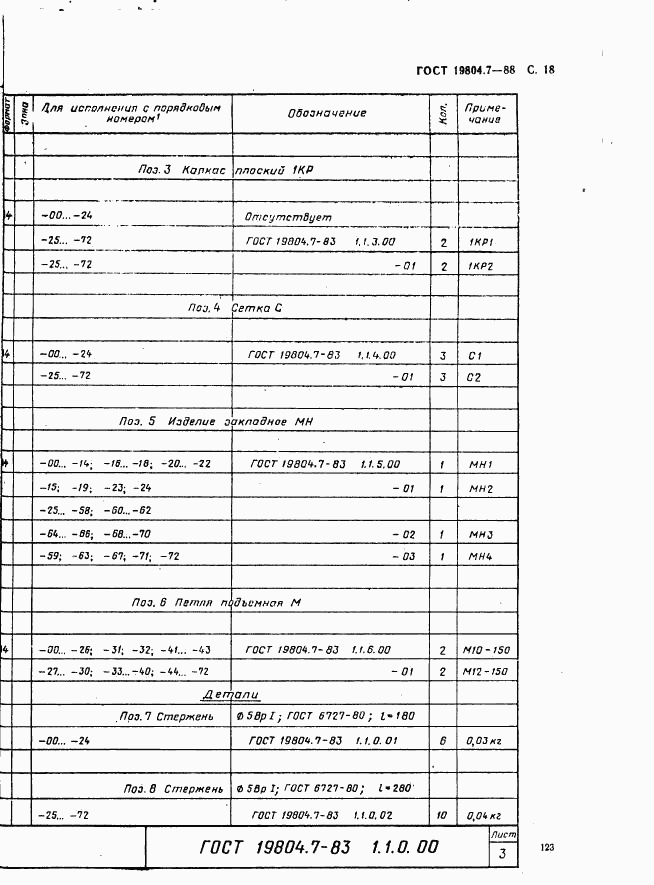 ГОСТ 19804.7—88 С. 18
Формат
Зона
Для исполнения с порядковым номером¹
Обозначение
Кол.
Примечание
Поз. 3 Каркас плоский 1КР
4 -00... -24 Отсутствует
-25... -72 ГОСТ 19804.7-83 1.1.3.00 2 1КР1
-25... -72 -01 2 1КР2
Поз. 4 Сетка С
4 -00... -24 ГОСТ 19804.7-83 1.1.4.00 3 С1
-25... -72 -01 3 С2
Поз. 5 Изделие закладное МН
4 -00... -14; -16... -18; -20... -22 ГОСТ 19804.7-83 1.1.5.00 1 МН1
-15; -19; -23; -24 -01 1 МН2
-25... -58; -60...-62
-64... -66; -68...-70 -02 1 МН3
-59; -63; -67; -71; -72 -03 1 МН4
Поз. 6 Петля подъемная М
4 -00... -26; -31; -32; -41... -43 ГОСТ 19804.7-83 1.1.6.00 2 М10-150
-27... -30; -33...-40; -44... -72 -01 2 М12-150
Детали
Поз. 7 Стержень ф5ВрI; ГОСТ 6727-80; l=180
-00... -24 ГОСТ 19804.7-83 1.1.0.01 6 0,03 кг
Поз. 8 Стержень ф5ВрI; ГОСТ 6727-80; l=280
-25... -72 ГОСТ 19804.7-83 1.1.0.02 10 0,04 кг
ГОСТ 19804.7-83 1.1.0.00
Лист
3
123